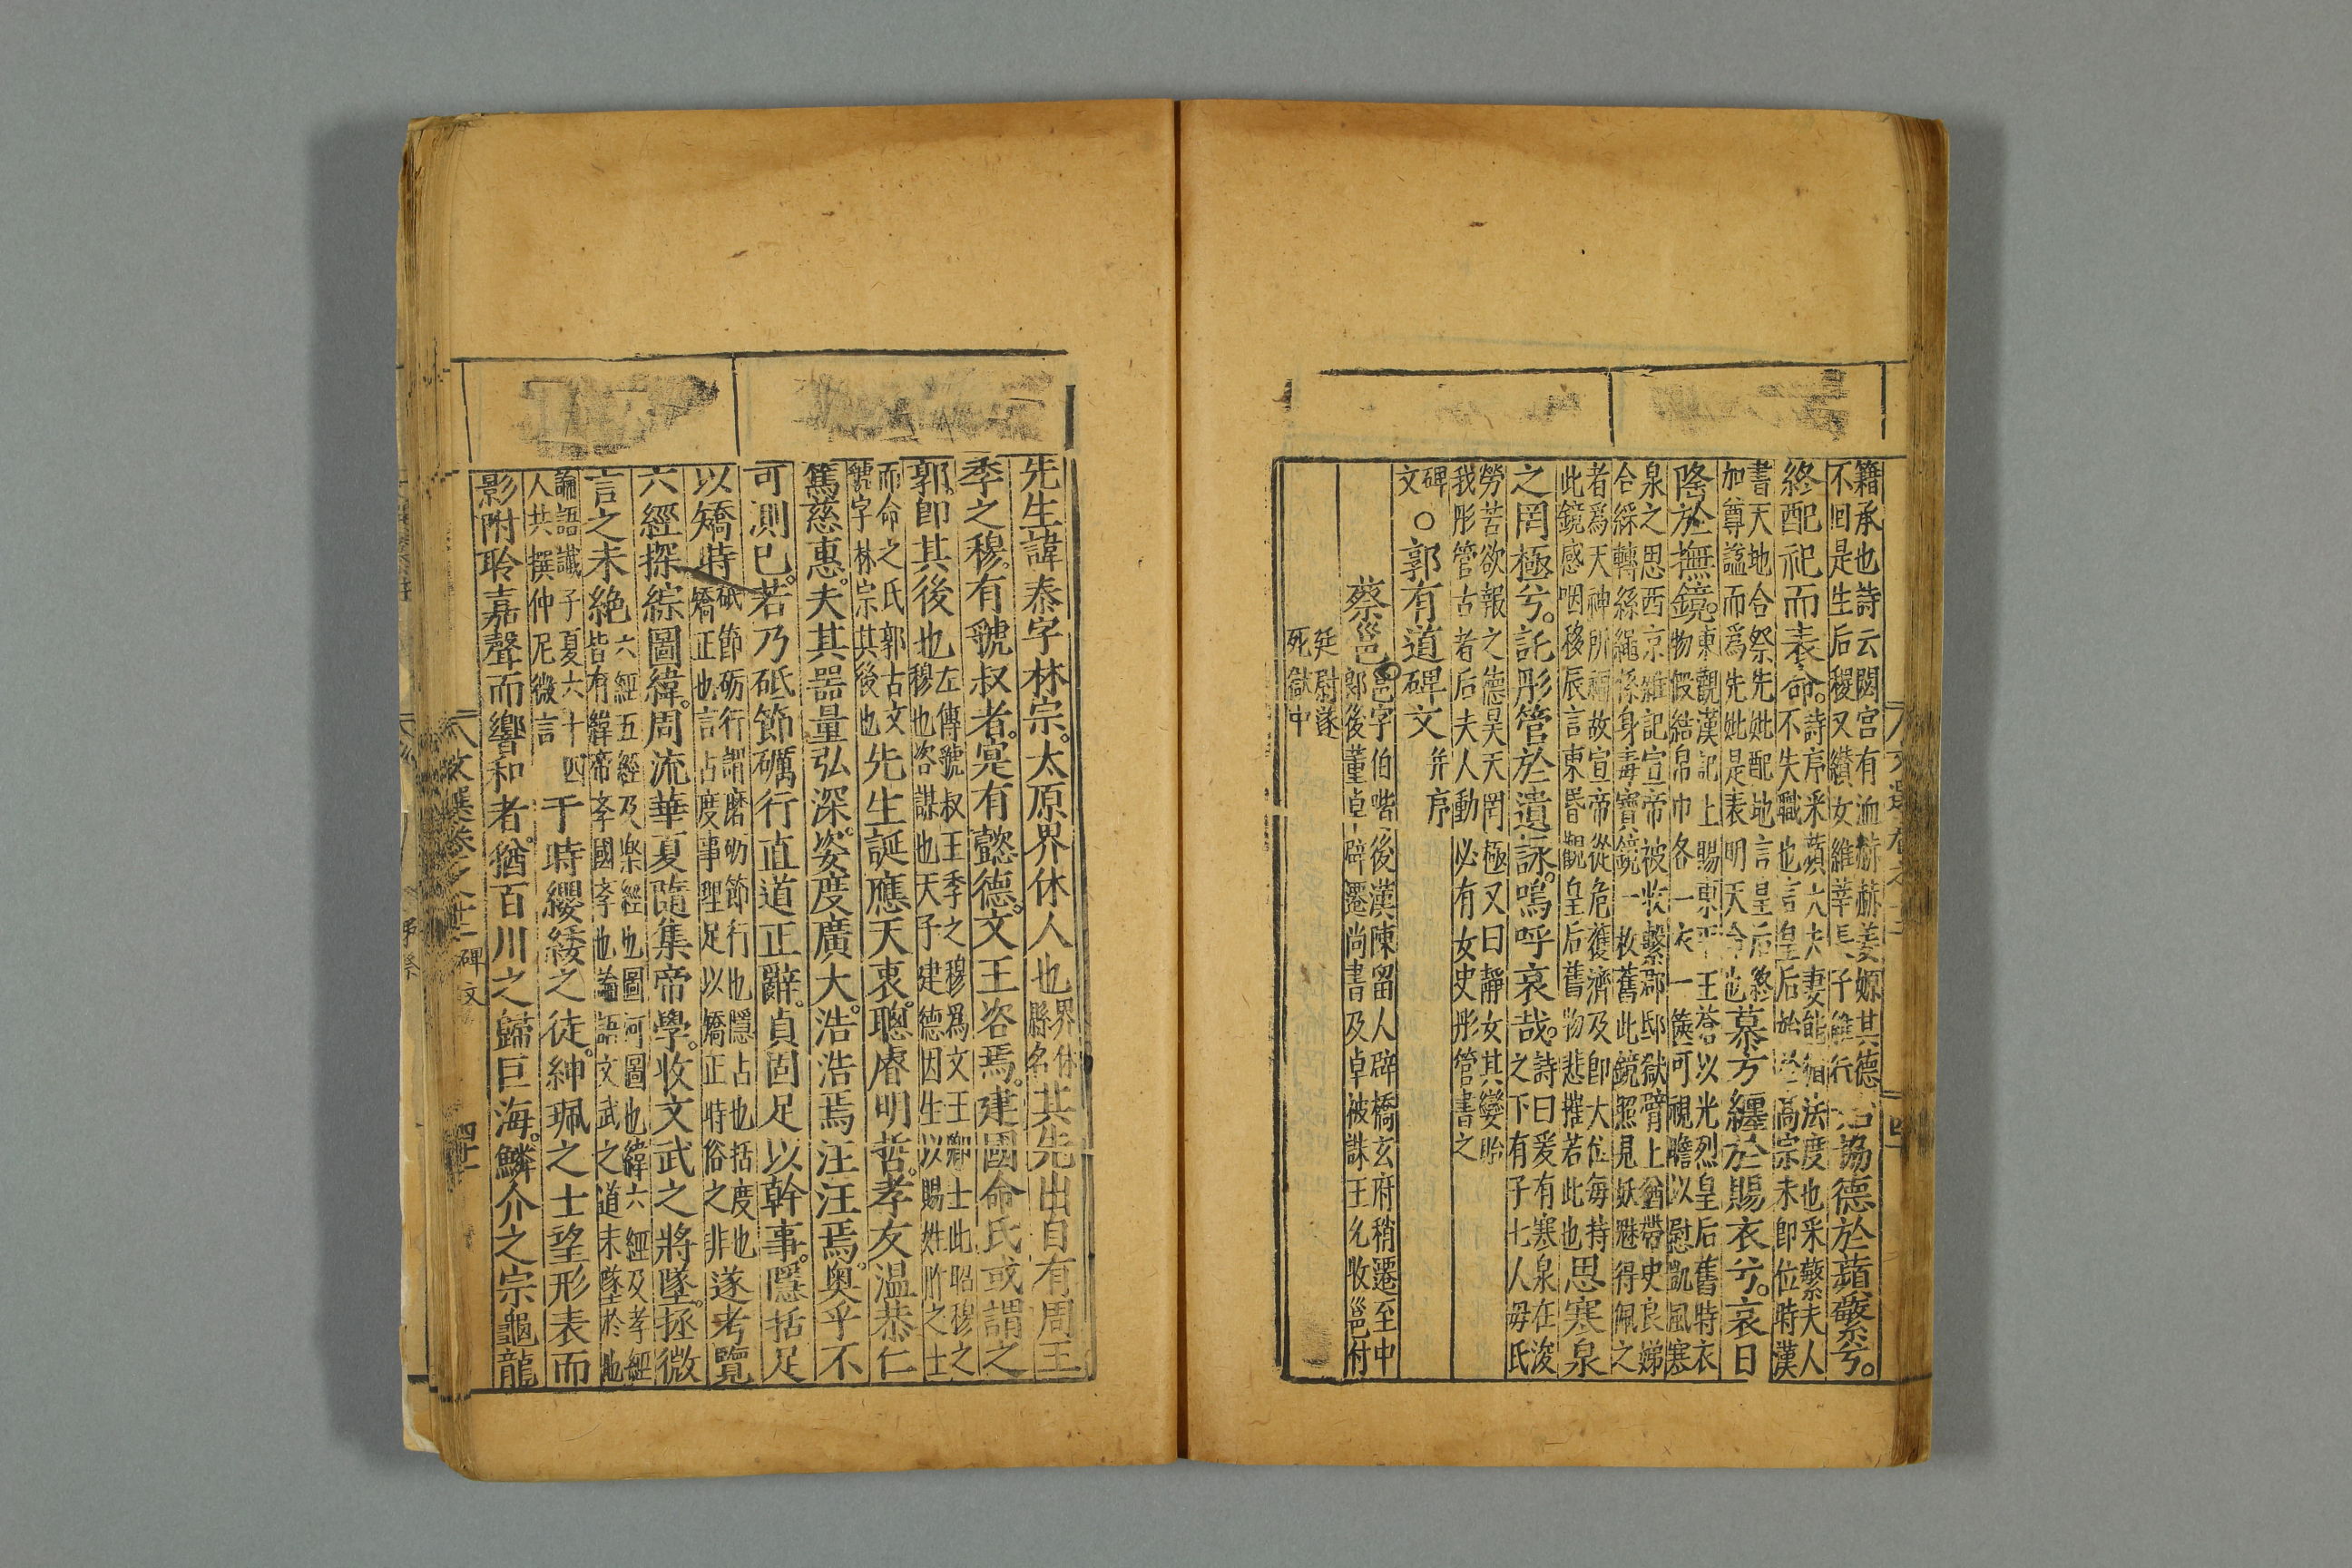 籍承也詩云閟宮有洫赫赫姜嫄其德
不回是生后稷又纘女維莘長子維行
協德於蘋蘩兮。
終配祀而表命。
詩序采蘋大夫妻能循法度也采蘩夫人
不失職也言皇后始
高宗未即位時漢
書天地合祭先妣配地言皇后終
加尊謚而爲先妣是表明天命也
慕方纏於賜衣兮。哀日
隆於撫鏡。
東觀漢記上賜東平王蒼以光烈皇后舊特衣
物假結帛巾各一衣一篋可視瞻以慰凱風寒
泉之思西京雜記宣帝被收繫郡邸獄臂上猶帶史良娣
合綵轉絲繩係身毒寶鏡一枚舊此鏡照見妖魅得佩之
者爲天神所福故宣帝從危獲濟及即大位每持
此鏡感咽移辰言東昏觀皇后舊物悲摧若此也
思寒泉
之罔極兮。託彤管於遺詠。嗚呼哀哉。
詩曰爰有寒泉在浚
之下有子七人毋氏
勞苦欲報之德昊天罔極又曰靜女其孌貽
我彤管古者后夫人動必有女史彤管書之
碑文
○郭有道碑文并序
蔡邕
邕字伯喈後漢陳留人辟橋玄府稍遷至中
郎後董卓辟遷尚書及卓被誅王允收邕付
廷尉遂
死獄中
先生諱泰字林宗。太原界休人也
界休
縣名
其先出自有周王
季之穆。有虢叔者。寔有懿德。文王咨焉。建國命氏或謂之
郭。即其後也
左傳虢叔王季之穆爲文王卿士此昭穆之
穆也咨謀也天子建德因生以賜姓胙之士
而命之氏郭古文
虢字林宗其後也
先生誕應天衷。聰睿明哲。孝友温恭仁
篤慈惠。夫其器量弘深。姿度廣大。浩浩焉汪汪焉。奥乎不
可測已。若乃砥節礪行直道正辭。貞固足以幹事。隱括足
以矯時
砥節砺行謂磨砺節行也隱占也括度也
矯正也言占度事理足以矯正時俗之非
遂考覽
六經探綜圖緯。周流華夏隨集帝學。收文武之將墜。拯微
言之未絶
六經五經及楽經也圖河圖也緯六經及孝經
皆有緯帝孝國孝也論語文武之道未墜於地
論語讖子夏六十四
人共撰仲尼微言
于時纓緌之徒。紳珮之士望形表而
影附聆嘉聲而響和者。猶百川之歸巨海。鱗介之宗龜龍
文選卷之廿一 碑文 四十一